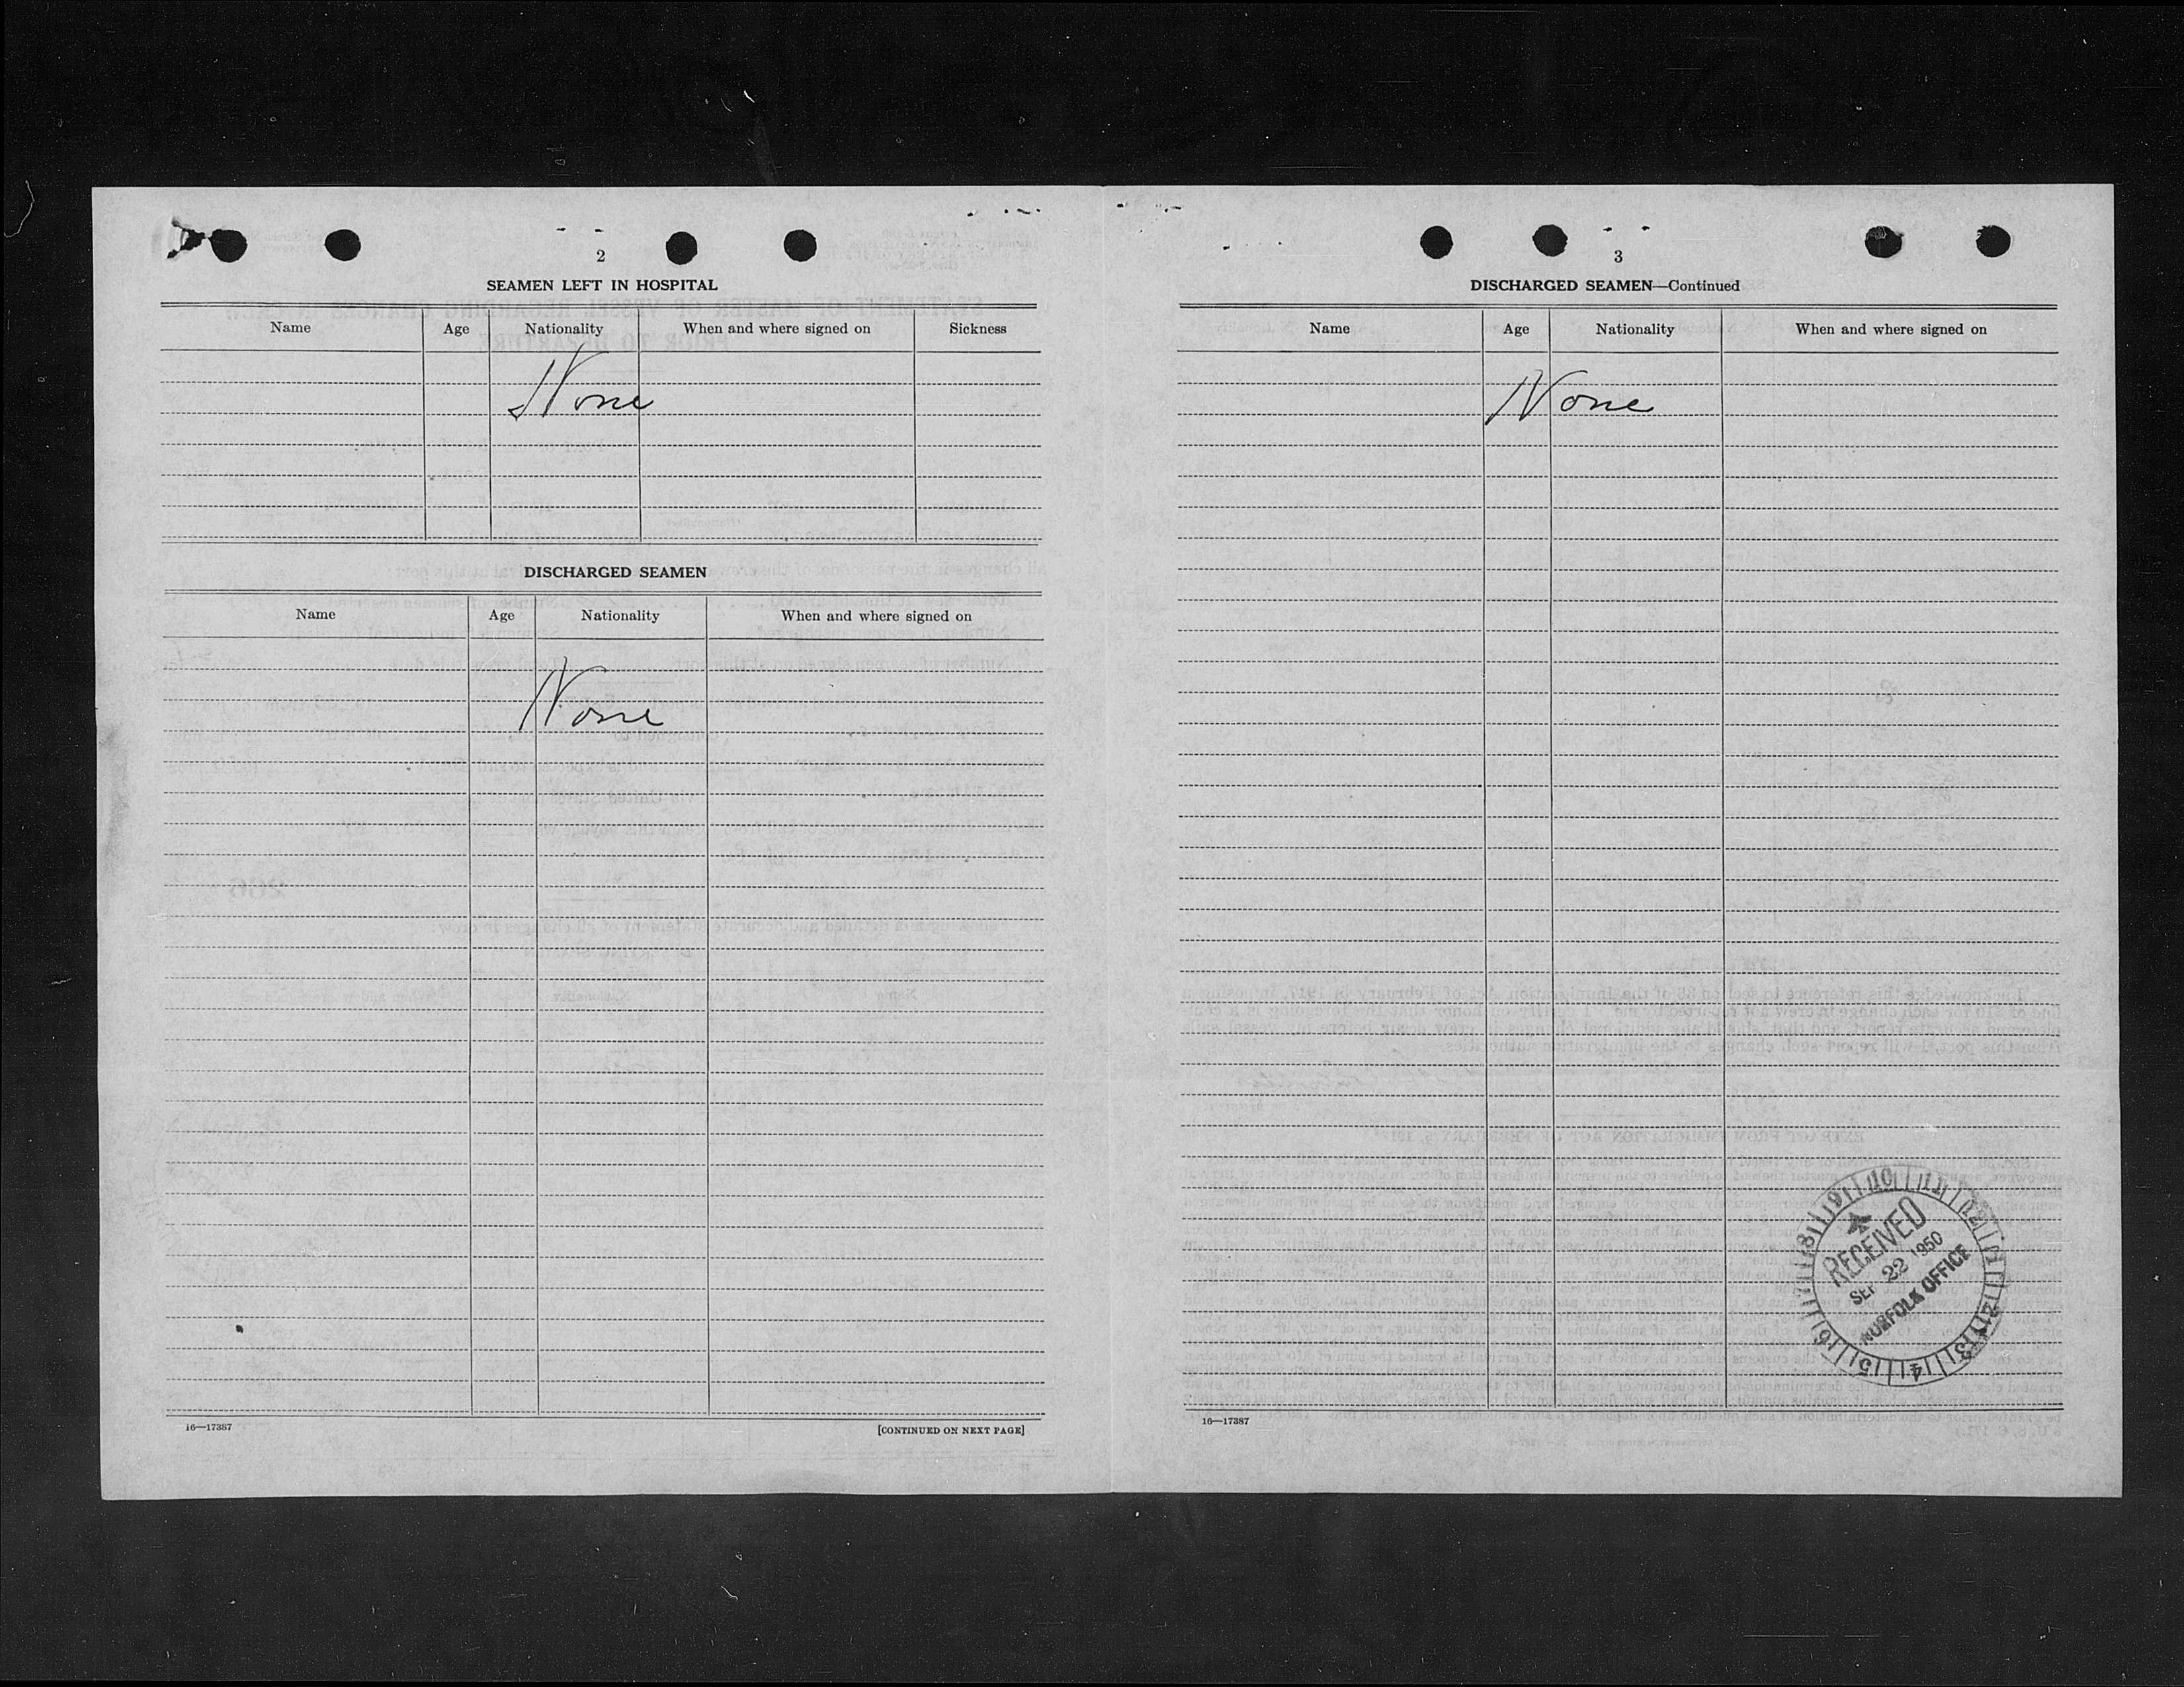 2
SEAMEN LEFT IN HOSPITAL
Name Age Nationality When and where signed on Sickness
None
DISCHARGED SEAMEN
Name Age Nationality When and where signed on
None
16—17387 [CONTINUED ON NEXT PAGE]
3
DISCHARGED SEAMEN—Continued
Name Age Nationality When and where signed on
None
9 10 11 12 1 2 3 4 5 6 7 8
RECEIVED
SEP 22 1950
NORFOLK OFFICE
16—17387